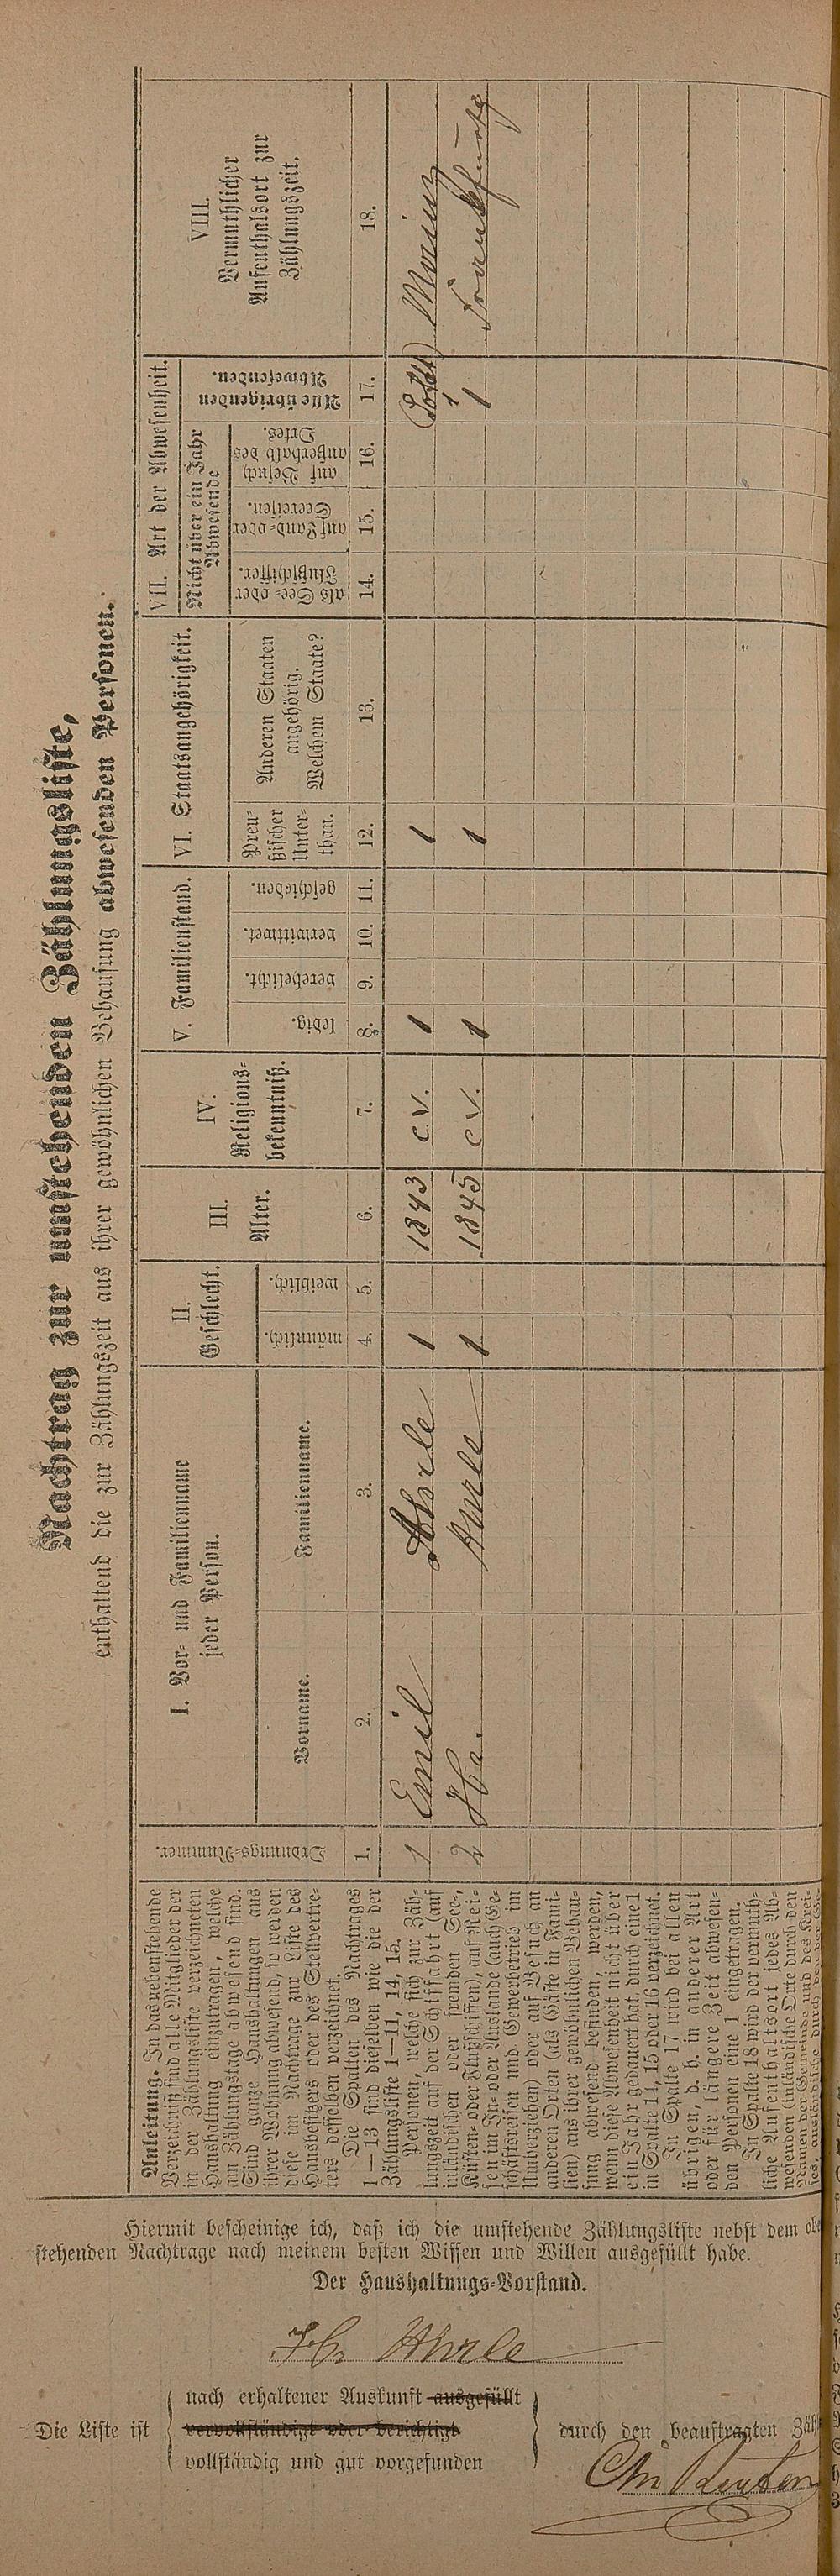 Nachtrag zur umstehenden Zählungsliste,
enthaltend die zur Zählungszeit aus ihrer gewöhnlichen Behausung abwesenden Personen.
Anleitung. In das nebenstehende
Verzeichniß sind alle Mitglieder der
in der Zählungsliste verzeichneten
Haushaltung einzutragen, welche
am Zählungstage abwesend sind.
Sind ganze Haushaltungen aus
ihrer Wohnung abwesend, so werden
diese im Nachtrage zur Liste des
Hausbesitzers oder des Stellvertre-
ters desselben verzeichnet.
Die Spalten des Nachtrages
1—13 sind dieselben wie die der
Zählungsliste 1—11, 14, 15.
Personen, welche sich zur Zäh-
lungszeit auf der Schifffahrt (auf
inländischen oder fremden See-,
Küsten- oder Flußschiffen), auf Rei-
sen im In- oder Auslande (auch Ge-
schäftsreisen und Gewerbetrieb im
Umherziehen) oder auf Besuch an
anderen Orten (als Gäste in Fami-
lien) aus ihrer gewöhnlichen Behau-
sung abwesend befinden, werden,
wenn diese Abwesenheit nicht über
ein Jahr gedauert hat, durch eine 1
in Spalte 14, 15 oder 16 verzeichnet.
In Spalte 17 wird bei allen
übrigen, d.h. in anderer Art
oder für längere Zeit abwesen-
den Personen eine 1 eingetragen.
In Spalte 18 wird der vermuth-
liche Aufenthaltsort jedes Ab-
wesenden (inländische Orte durch den
Namen der Gemeinde und des Krei-
ses, ausländische durch den der Ge-
Ordnungs-Nummer.
I. Vor- und Familienname
jeder Person.
Vorname.
Familienname.
II.
Geschlecht.
männlich.
weiblich.
III.
Alter.
IV.
Religions-
bekenntniß.
V. Familienstand.
ledig.
verehelicht.
verwittwet.
geschieden.
VI. Staatsangehörigkeit.
Preu-
ßischer
Unter-
than.
Anderen Staaten
angehörig.
Welchem Staate?
VII. Art der Abwesenheit.
Nicht über ein Jahr
Abwesende
als See- oder
Flußschiffer.
auf Land- oder
Seereisen.
auf Besuch
außerhalb des
Ortes.
Alle übrigen
Abwesenden.
VIII.
Vermuthlicher
Aufenthalsort zur
Zählungszeit.
1. 2. 3. 4. 5. 6. 7. 8. 9. 10. 11. 12. 13. 14. 15. 16. 17. 18.
1 Emil Ahrle 1 1843 ev. 1 1 1 Mainz
2 Hr. Ahrle 1 1845 ev. 1 1 1 Frankfurt
Hiermit bescheinige ich, daß ich die umstehende Zählungsliste nebst dem obe
stehenden Nachtrage nach meinem besten Wissen und Willen ausgefüllt habe.
Der Haushaltungs-Vorstand.
Hr Ahrle
Die Liste ist
nach erhaltener Auskunft ausgefüllt
vervollständigt oder berichtigt
vollständig und gut vorgefunden
durch den beauftragten Zäh
Chr